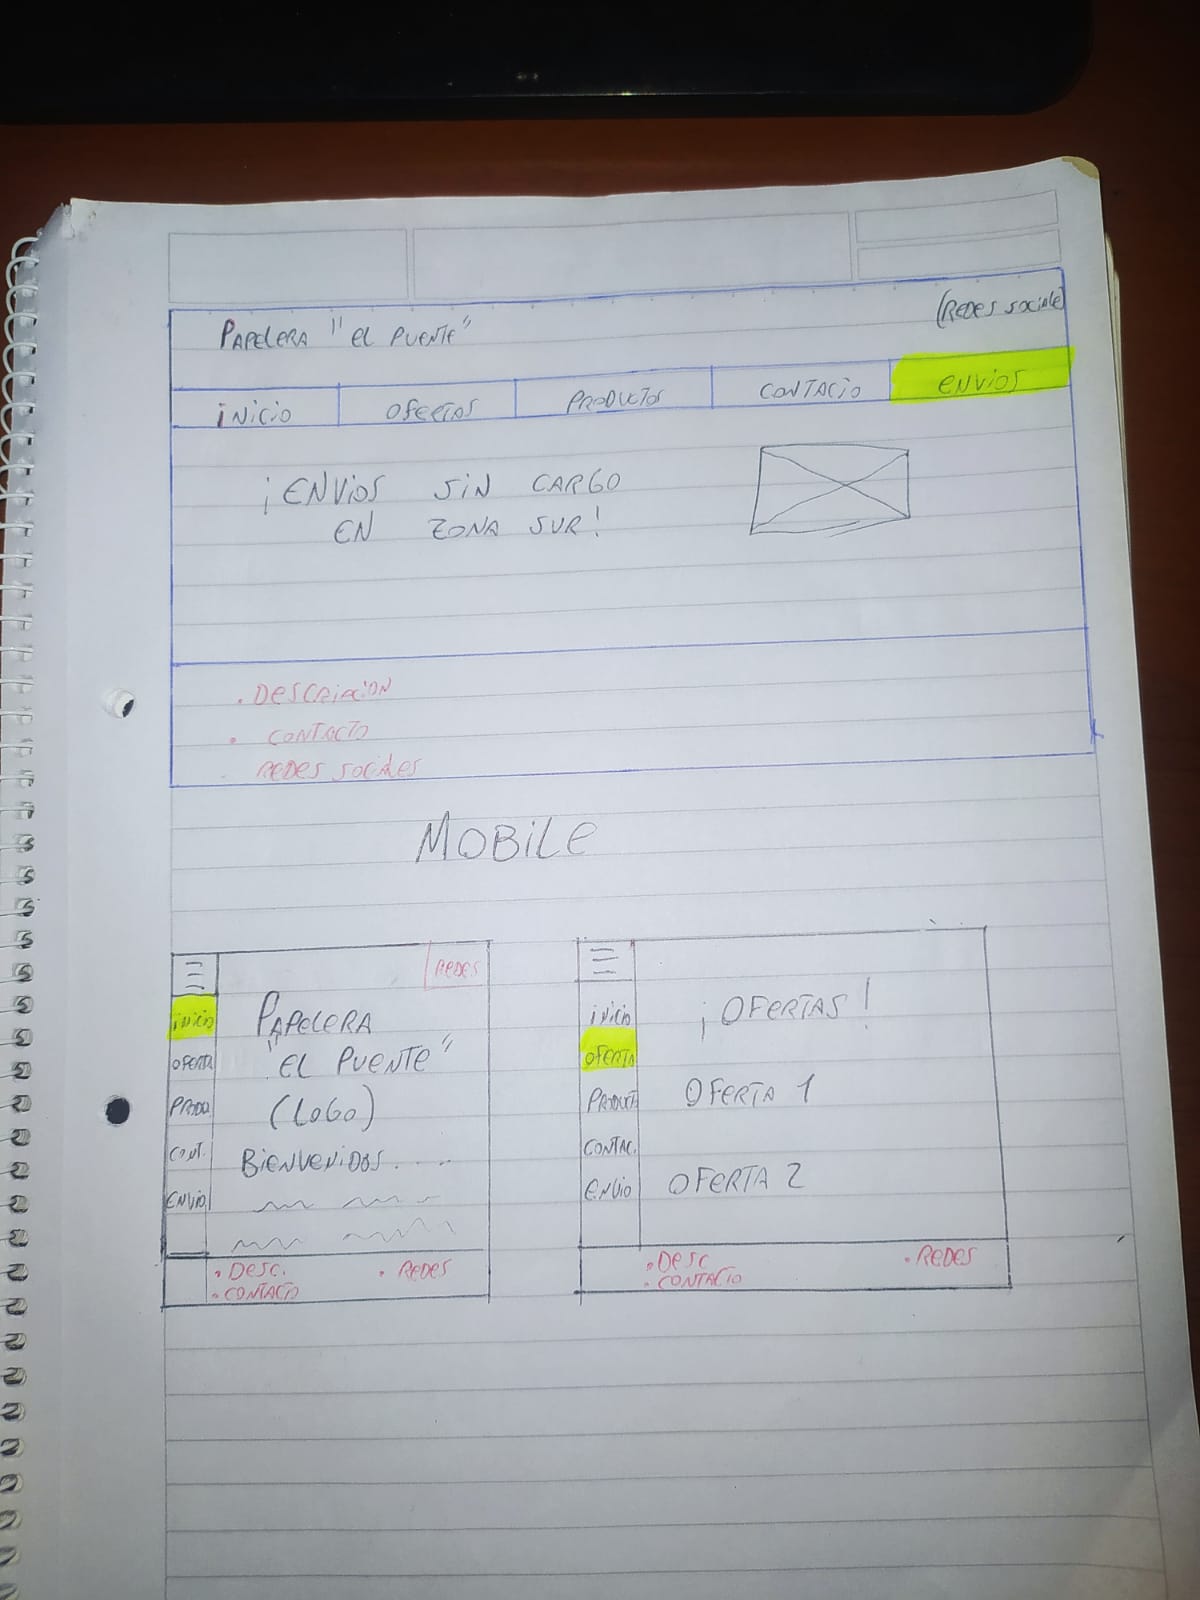 PAPELERA "EL PUENTE"
(REDES SOCIALE
INICIO OFERTAS PRODUCTOS CONTACTO ENVIOS
¡ENVIOS SIN CARGO
EN ZONA SUR!
. DESCRIPCION
. CONTACTO
. REDES SOCIALES
MOBILE
REDES
INICIO
OFERTA
PROD.
CONT.
ENVIO
PAPELERA
"EL PUENTE"
(LOGO)
BIENVENIDOS.....
. DESC. . REDES
. CONTACTO
INICIO
OFERTA
PRODUCT
CONTAC.
ENVIO
¡OFERTAS!
OFERTA 1
OFERTA 2
. DESC . REDES
. CONTACTO